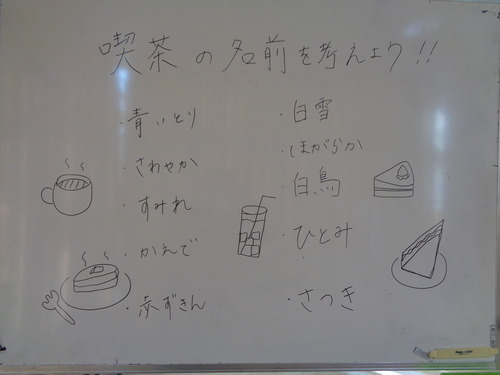 喫茶の名前を考えよう!!
・青いとり
・さわやか
・すみれ
・かえで
・赤ずきん
・白雪
・ほがらか
・白鳥
・ひとみ
・さつき